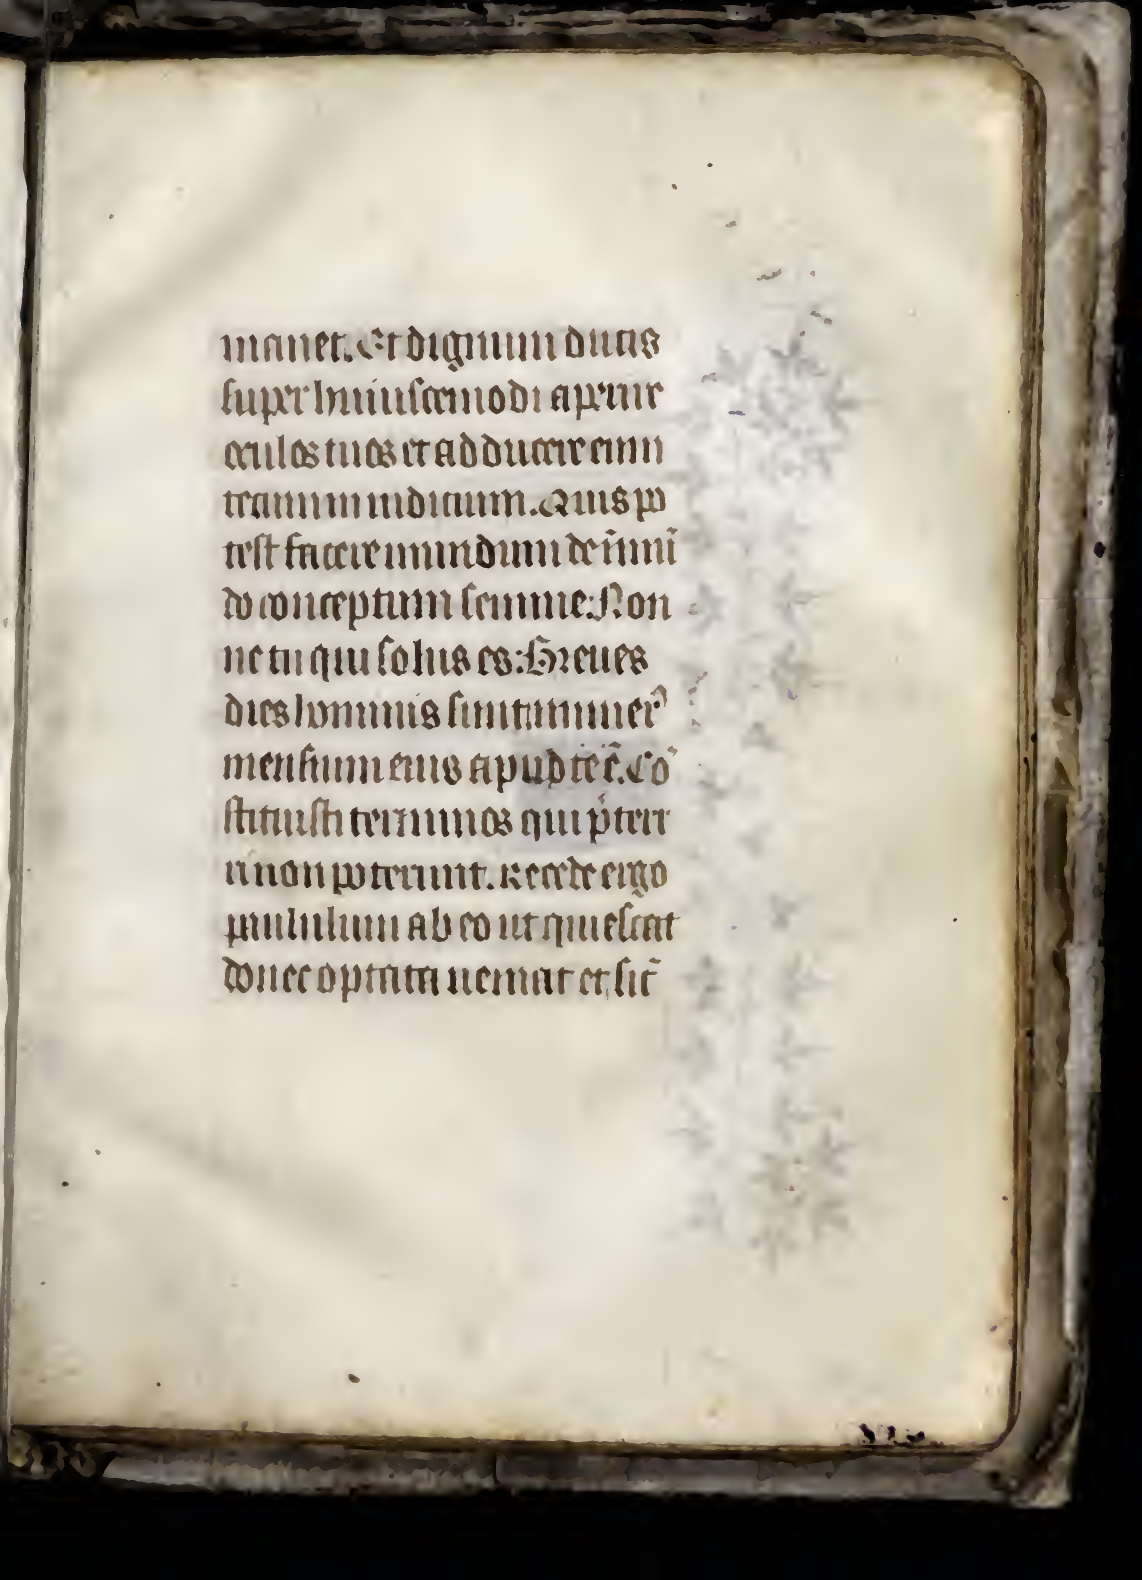 manet. Et dignum ducis
super huiuscemodi aperire
oculos tuos et adducere eum
tecum in iudicium. Quis po
test facere mundum de īmū
do conceptum semine: Non
ne tu qui solus es: Breues
dies hominis sunt numer᾽
mensium eius apud te ē. Cō
stituisti terminos qui p̄terir
ri non poterunt. Recede ergo
paululum ab eo ut quiescat
donec optata ueniat et sic̄